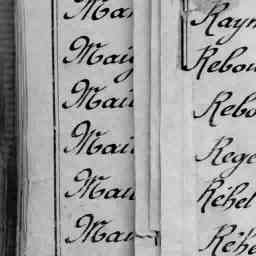 Mar
Maig
Mau
Mau
Mau
Mau
Raym
Rebou
Rebo
Rege
Réhel
Réhe